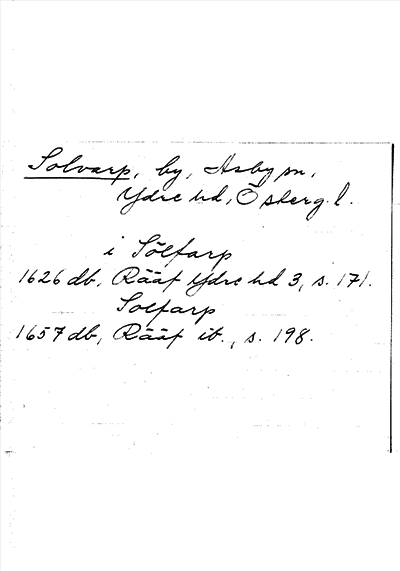 Solvarp, by, Asby sn,
Ydre hd, Östergl.
i Sölfarp
1626 db, Rääf Ydre hd 3, s. 171.
Solfarp
1657 db, Rääf ib., s. 198.